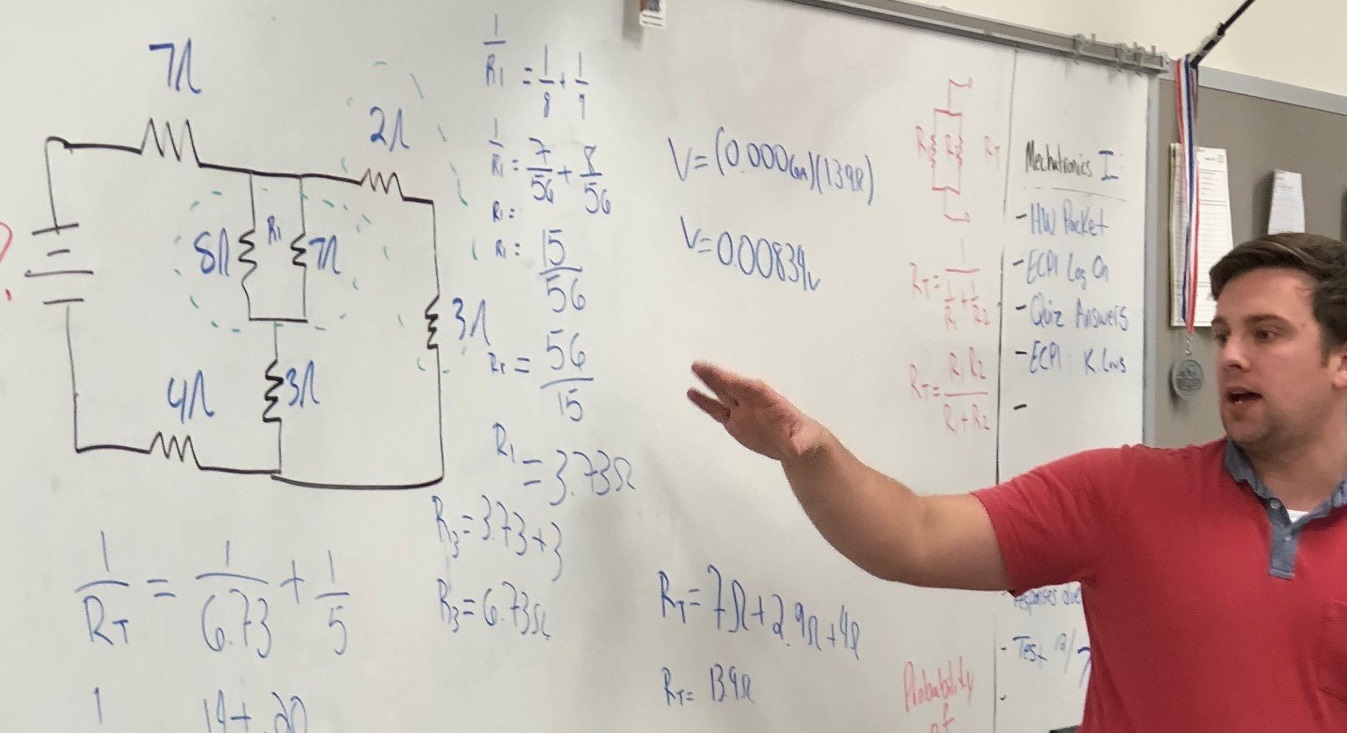 7Ω
2Ω
8Ω
R1
7Ω
3Ω
4Ω
3Ω
?
1/R1 = 1/8 + 1/7
1/R1 = 7/56 + 8/56
R1 =
R1 = 15/56
RT = 56/15
R1 = 3.73Ω
R3 = 3.73 + 3
R3 = 6.73Ω
1/RT = 1/6.73 + 1/5
1 .14 + .20
V = (0.0006A)(13.9Ω)
V = 0.00834V
RT = 7Ω + 2.9Ω + 4Ω
RT = 13.9Ω
R1 R2 RT
RT = 1/(1/R1 + 1/R2)
RT = R1R2/(R1 + R2)
Probability
of
Mechatronics I:
- HW Packet
- ECPI Log On
- Quiz Answers
- ECPI: K. Laws
-
- Test 12/7
-